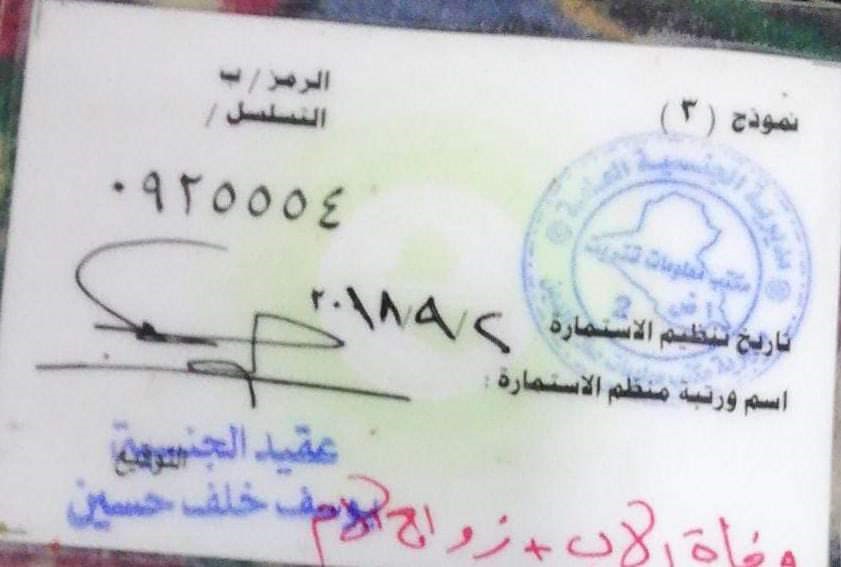 نموذج ( ٣ )
الرمز / ب
التسلسل /
٠٩٢٥٥٥٤
مديرية الجنسية العامة
مكتب معلومات
2
تاريخ تنظيم الاستمارة ٢٠١٨/٩/٢
اسم ورتبة منظم الاستمارة :
التوقيع
عقيد الجنسية
يوسف خلف حسين
وفاة الاب + زواج الام